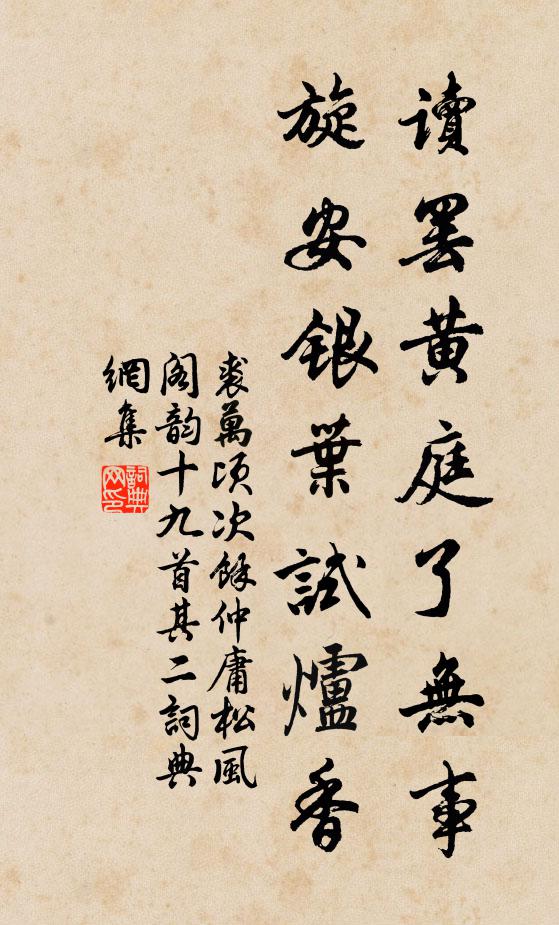 读罢黄庭了無事
旋安銀葉試爐香
裘萬頃次餘仲庸松風
阁韵十九首其二詞典
網集
詞典網印